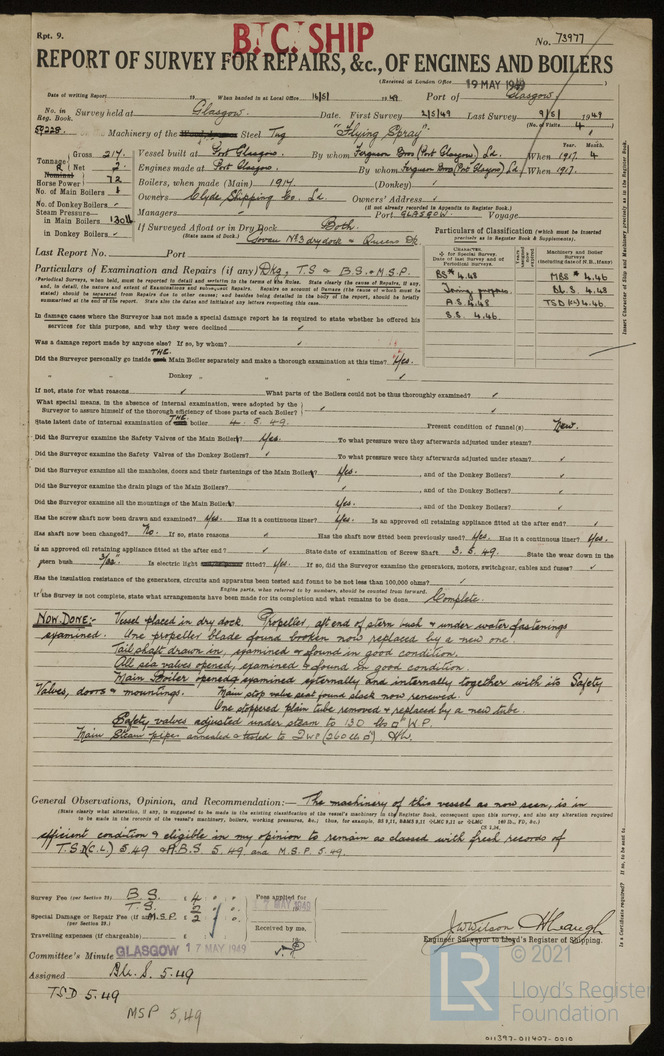 Rpt. 9.
B.C. SHIP
No. 73977
REPORT OF SURVEY FOR REPAIRS, &c., OF ENGINES AND BOILERS
(Received at London Office 19 MAY 1949 )
Date of writing Report 19 When handed in at Local Office 16/5/ 1949 Port of Glasgow
No. in Reg. Book. Survey held at Glasgow. Date. First Survey 2/5/49 Last Survey 9/5/ 1949
(No. of Visits 4 )
Machinery of the Steel Tug "Flying Spray"
Year. Month.
Tonnage Gross 217. Vessel built at Port Glasgow. By whom Ferguson Bros (Port Glasgow) Ld. When 1917. 4
Net 2. Engines made at Port Glasgow. By whom Ferguson Bros (Port Glasgow) Ld. When 1917.
Horse Power 72 Boilers, when made (Main) 1917. (Donkey)
No. of Main Boilers 1 Owners Clyde Shipping Co. Ld. Owners' Address
(if not already recorded in Appendix to Register Book.)
No. of Donkey Boilers Managers Port GLASGOW Voyage
Steam Pressure—
in Main Boilers 130 lb If Surveyed Afloat or in Dry Dock Both.
in Donkey Boilers (State name of Dock.) Govan No 3 dry dock & Queens Dk
Particulars of Classification (which must be inserted precisely as in Register Book & Supplements).
Last Report No. Port
CHARACTER. for Special Survey. Date of last Survey and of Periodical Surveys.
Machinery and Boiler Surveys (including date of N.B., if any)
BS* 4.48 MBS* 4.46
Towing purposes. BL.S. 4.48
A.S. 4.48 TSD (CL) 4.46.
S.S. 4.46
Particulars of Examination and Repairs (if any) Dkg, T.S & B.S. & M.S.P.
(Periodical Surveys, when held, must be reported in detail and seriatim in the terms of the Rules. State clearly the causes of Repairs, if any,
In damage cases where the Surveyor has not made a special damage report he is required to state whether he offered his
services for this purpose, and why they were declined
Was a damage report made by anyone else? If so, by whom?
Did the Surveyor personally go inside THE Main Boiler separately and make a thorough examination at this time? Yes.
„ „ Donkey „ „ „
If not, state for what reasons What parts of the Boilers could not be thus thoroughly examined?
What special means, in the absence of internal examination, were adopted by the
Surveyor to assure himself of the thorough efficiency of those parts of each Boiler?
State latest date of internal examination of THE boiler 4. 5. 49. Present condition of funnel(s) New.
Did the Surveyor examine the Safety Valves of the Main Boiler? Yes. To what pressure were they afterwards adjusted under steam?
Did the Surveyor examine the Safety Valves of the Donkey Boilers? To what pressure were they afterwards adjusted under steam?
Did the Surveyor examine all the manholes, doors and their fastenings of the Main Boiler? Yes. , and of the Donkey Boilers?
Did the Surveyor examine the drain plugs of the Main Boilers? , and of the Donkey Boilers?
Did the Surveyor examine all the mountings of the Main Boiler? Yes. , and of the Donkey Boilers?
Has the screw shaft now been drawn and examined? Yes. Has it a continuous liner? Yes. Is an approved oil retaining appliance fitted at the after end?
Has shaft now been changed? No. If so, state reasons Has the shaft now fitted been previously used? Yes. Has it a continuous liner? Yes.
Is an approved oil retaining appliance fitted at the after end? State date of examination of Screw Shaft 3. 5. 49. State the wear down in the
stern bush 3/32". Is electric light fitted? Yes. If so, did the Surveyor examine the generators, motors, switchgear, cables and fuses?
Has the insulation resistance of the generators, circuits and apparatus been tested and found to be not less than 100,000 ohms?
Engine parts, when referred to by numbers, should be counted from forward.
If the Survey is not complete, state what arrangements have been made for its completion and what remains to be done Complete.
NOW DONE:- Vessel placed in dry dock. Propeller, aft end of stern bush & under water fastenings
examined. One propeller blade found broken now replaced by a new one.
Tail shaft drawn in, examined & found in good condition.
All sea valves opened, examined & found in good condition.
Main Boiler opened & examined externally and internally together with its Safety
Valves, doors & mountings. Main stop valve seat found slack now renewed.
One stoppered plain tube removed & replaced by a new tube.
Safety valves adjusted under steam to 130 lbs □" W.P.
Main Steam pipes annealed & tested to 2WP (260 lb □").
General Observations, Opinion, and Recommendation:— The machinery of this vessel as now seen, is in
(State clearly what alteration, if any, is suggested to be made in the existing classification of the vessel's machinery in the Register Book, consequent upon this survey, and also any alteration required
to be made in the records of the vessel's machinery, boilers, working pressures, &c.; thus, for example,
efficient condition & eligible in my opinion to remain as classed with fresh records of
T.S.D(C.L) 5.49 & B.S 5.49. and M.S.P 5.49.
Survey Fee (per Section 29) B.S. £ 4 : :
T.S. 2
Special Damage or Repair Fee (if any) M.S.P. £ 2
(per Section 29.)
Travelling expenses (if chargeable) £
Fees applied for
MAY 1949
Received by me,
J.W. Wilson
Engineer Surveyor to Lloyd's Register of Shipping.
Committee's Minute GLASGOW 17 MAY 1949
Assigned BL. S. 5.49
TSD 5.49
MSP 5.49
Insert Character of Ship and Machinery precisely as in the Register Book.
Is a Certificate required? If so, to be sent to
© 2021
LR
Lloyd's Register
Foundation
011397-011407-0010